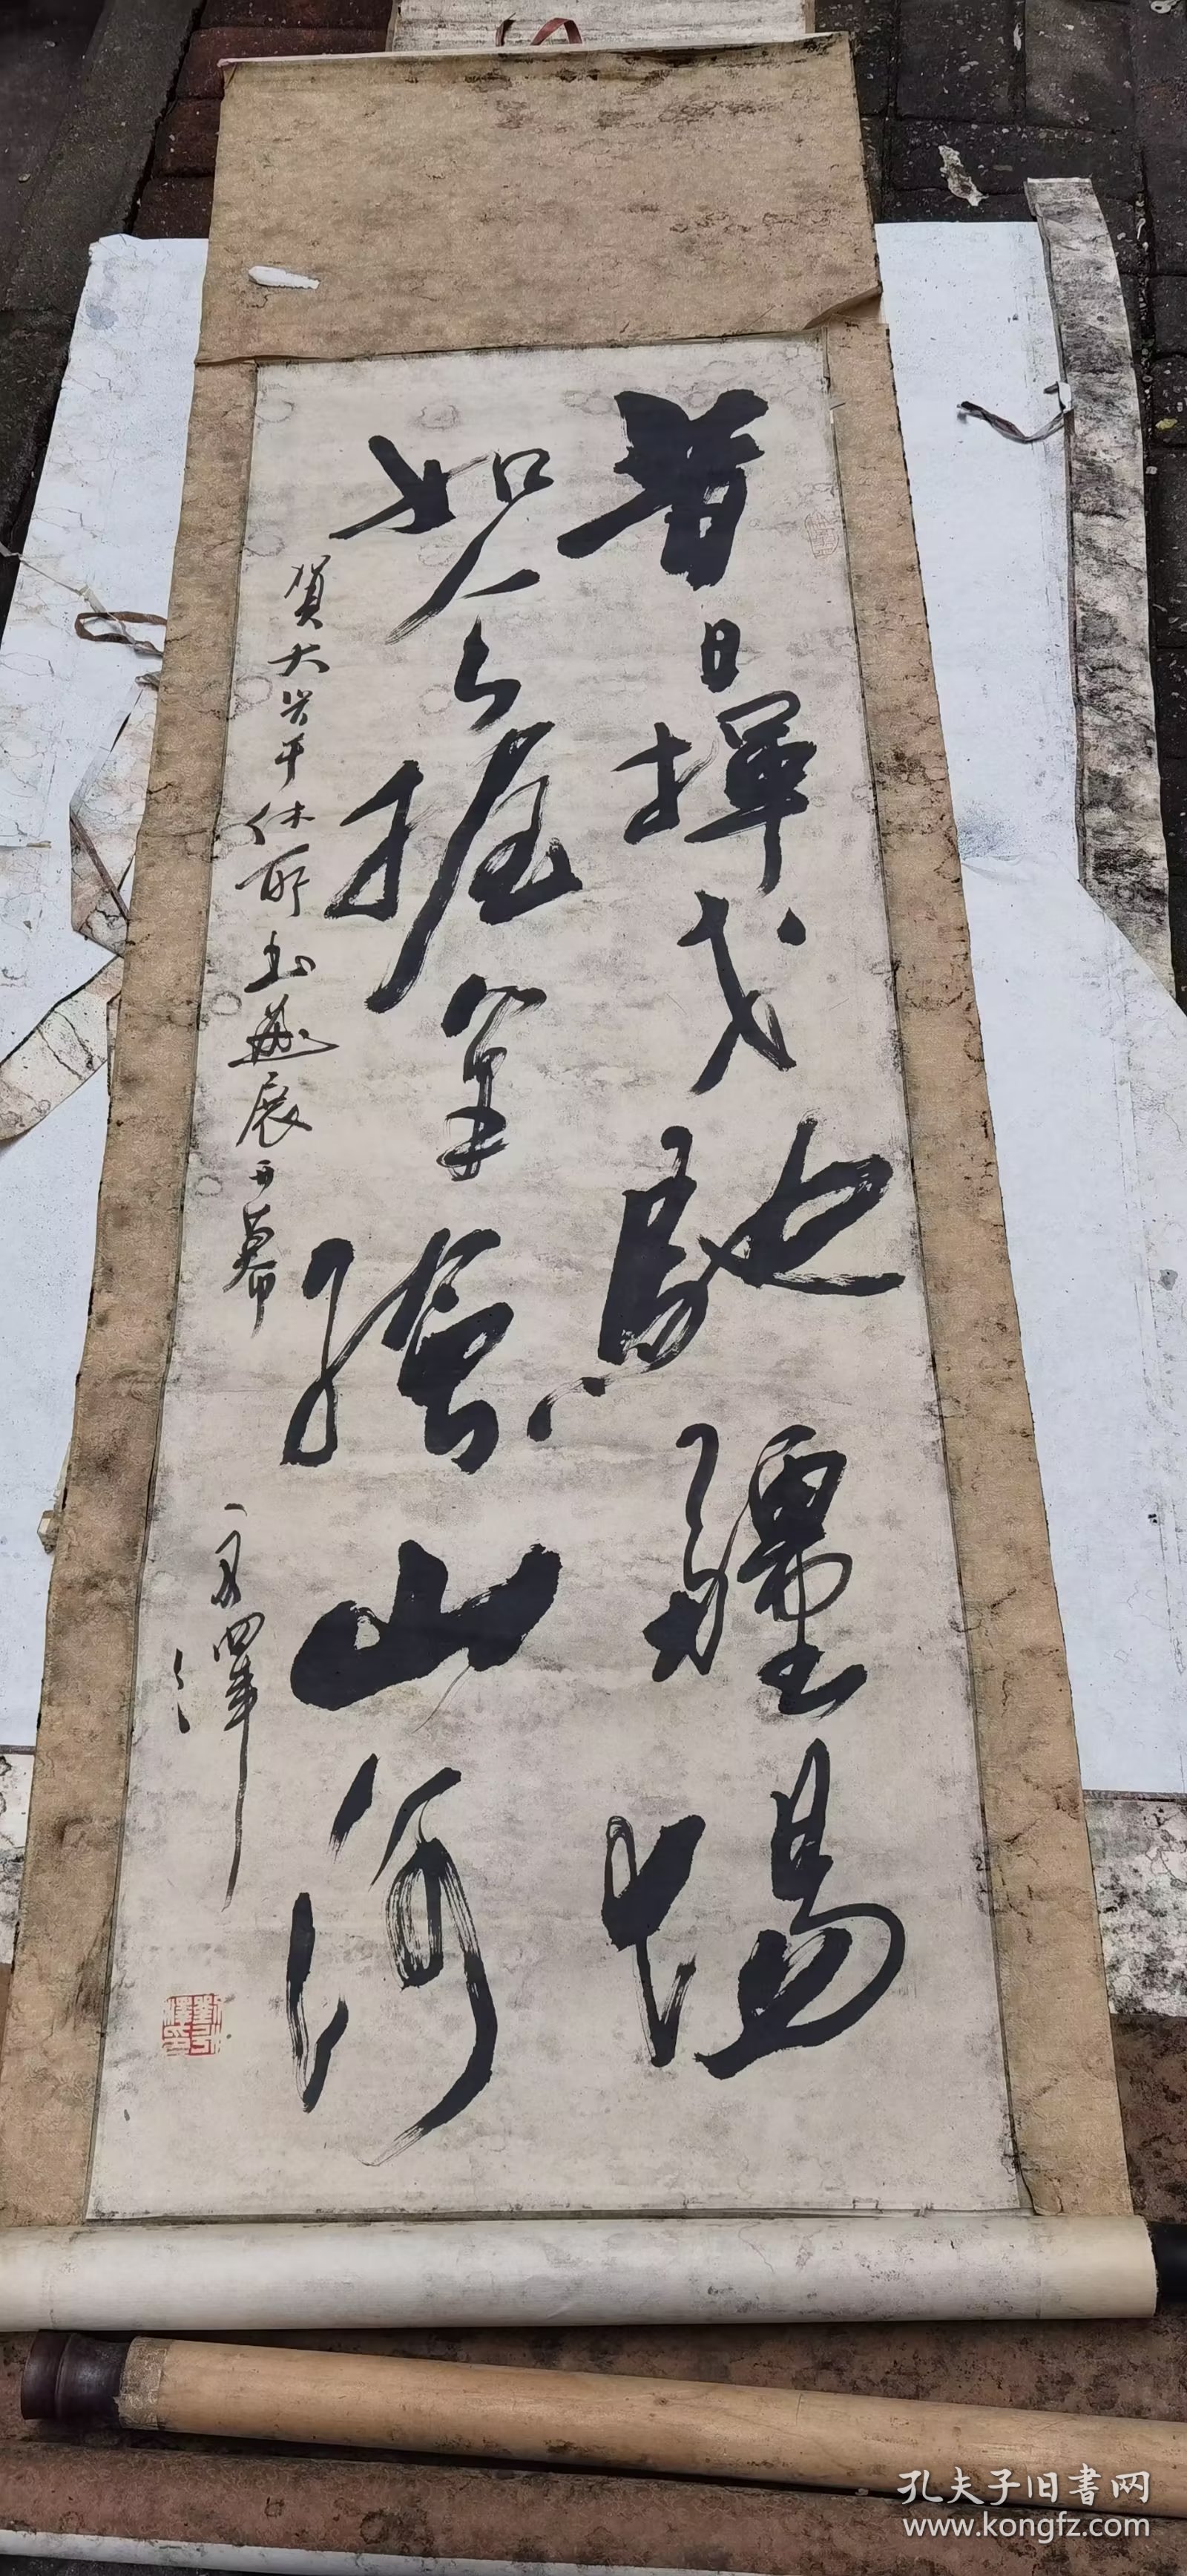 昔日揮戈馳疆場
如今握笔繪山河
賀大兴干休所书画展开幕
孔夫子旧書网
www.kongfz.com